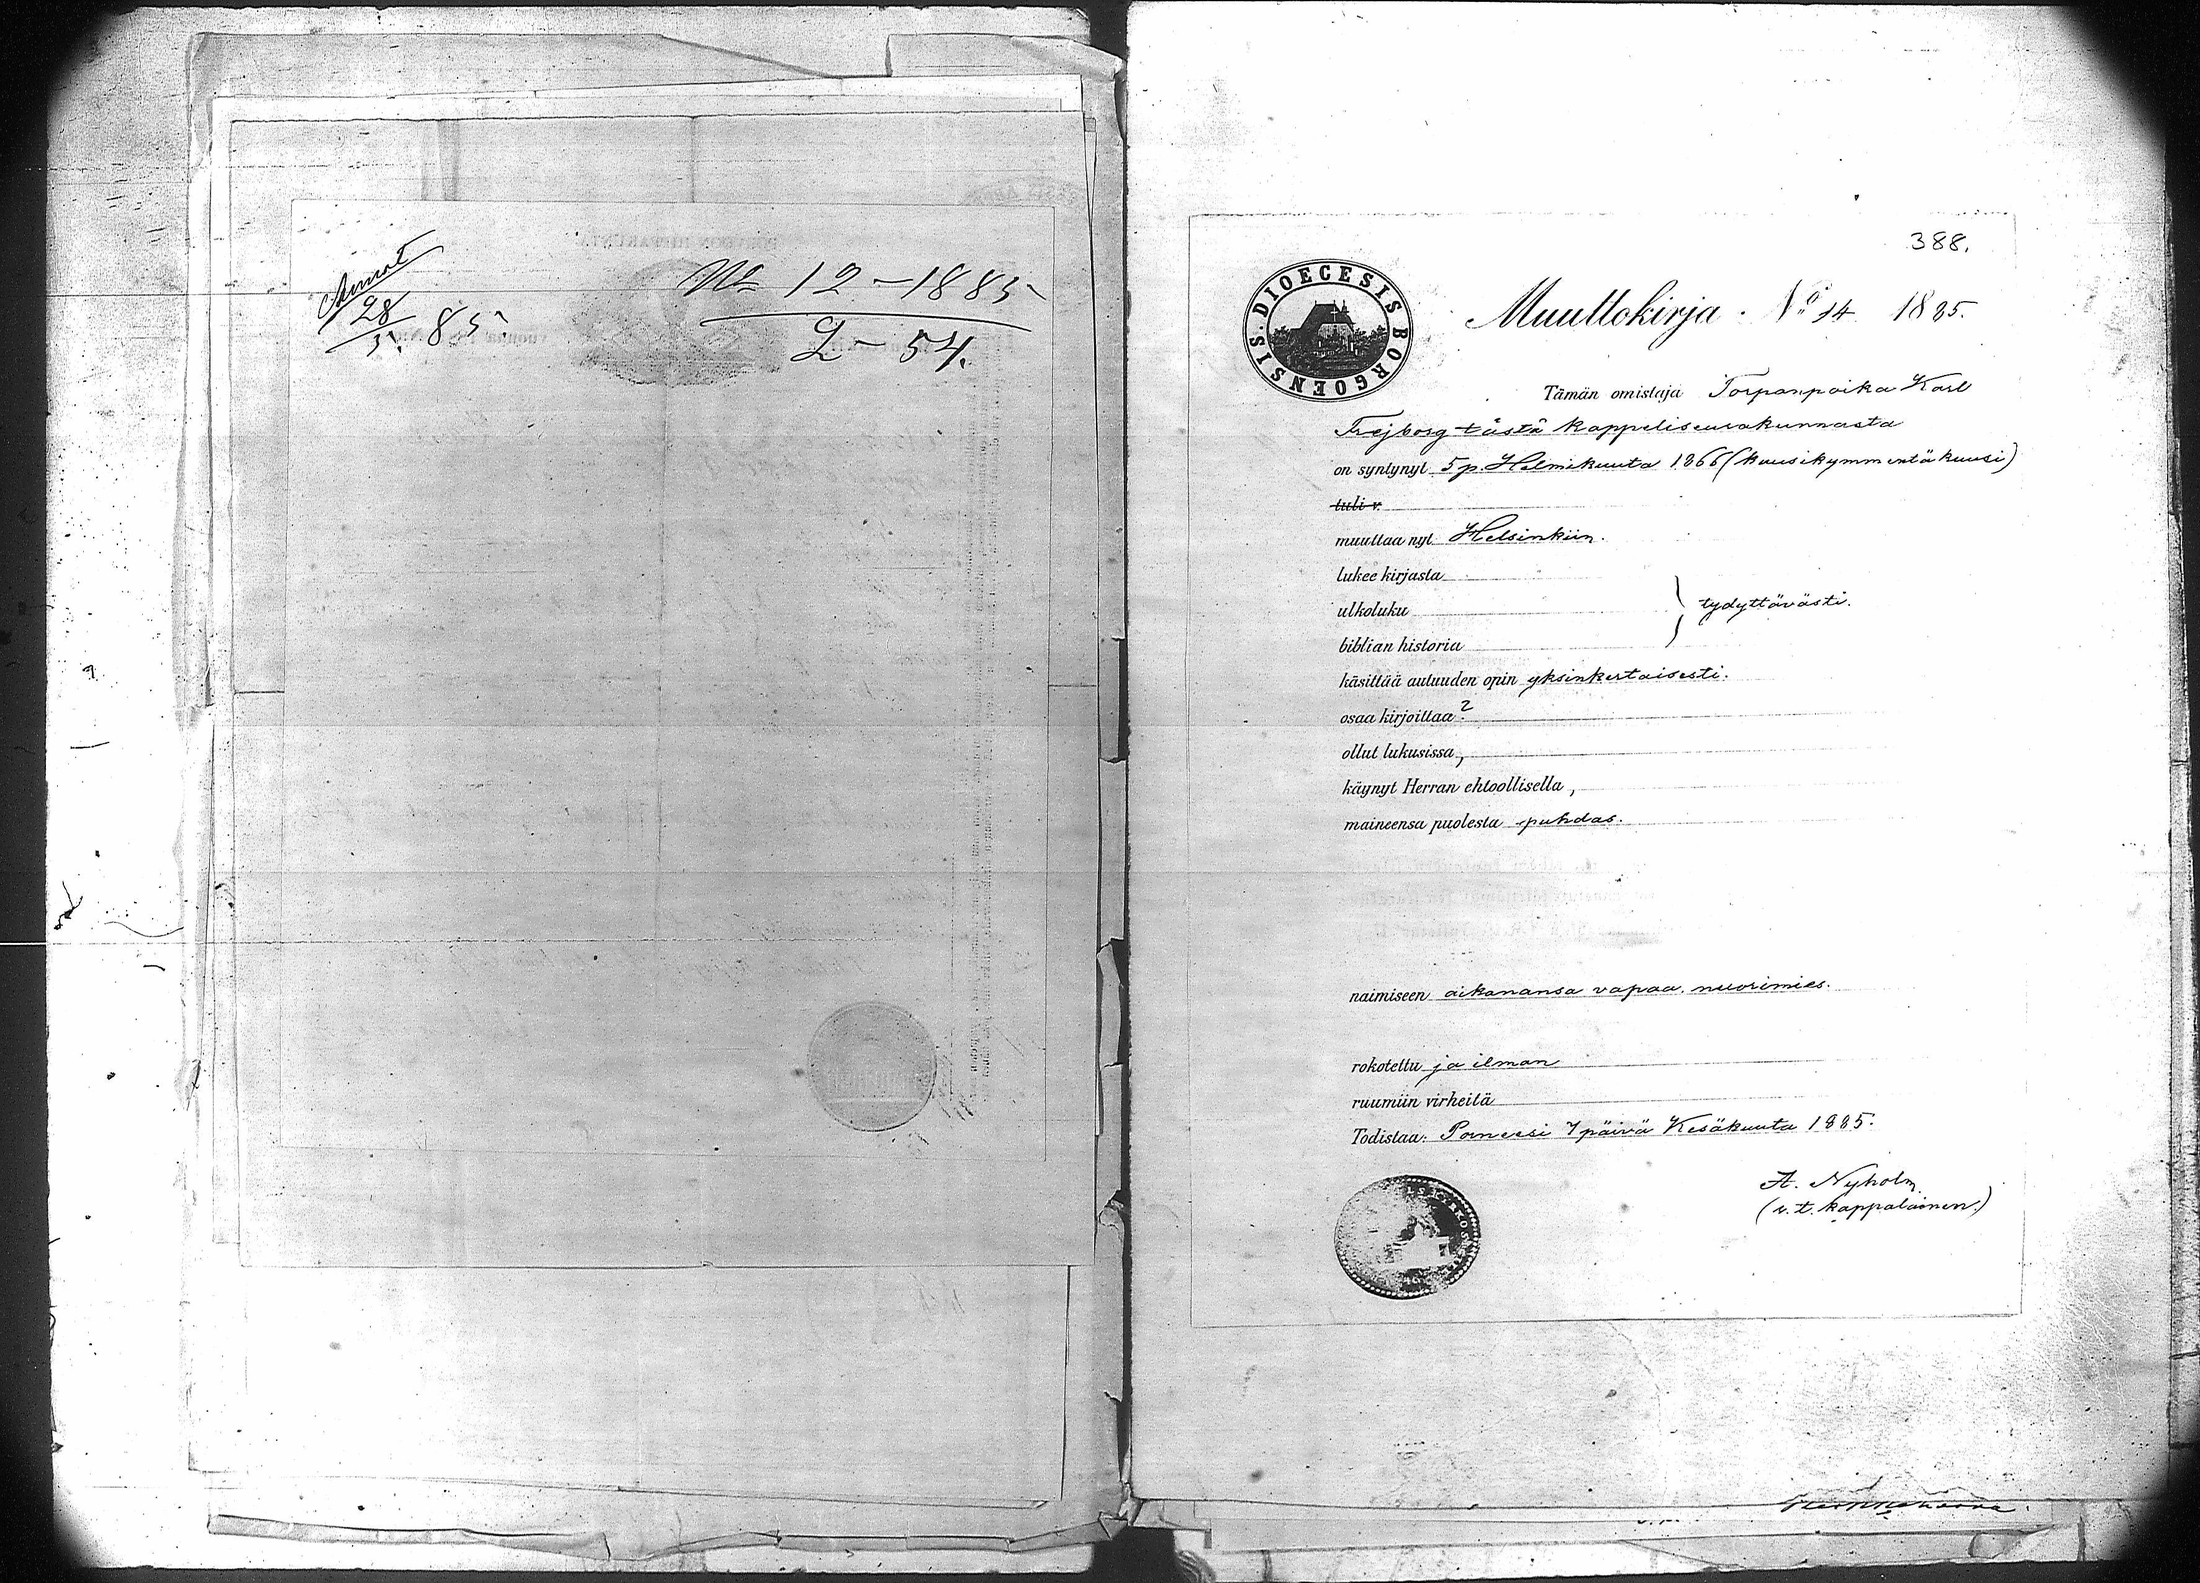 Anmt
28/5. 85.
No 12 – 1885
L – 54.
388.
DIOECESIS BORGOENSIS.
Muuttokirja. No 14 1885.
Tämän omistaja Torpanpoika Karl
Frejborg tästä kappeliseurakunnasta
on syntynyt 5 p. Helmikuuta 1866 (kuusikymmentäkuusi)
tuli v.
muuttaa nyt Helsinkiin.
lukee kirjasta
ulkoluku } tydyttävästi.
biblian historia
käsittää autuuden opin yksinkertaisesti.
osaa kirjoittaa ?
ollut lukusissa,
käynyt Herran ehtoollisella,
maineensa puolesta puhdas.
naimiseen aikanansa vapaa, nuorimies.
rokotettu ja ilman
ruumiin virheitä
Todistaa: Porneesi 7 päivä Kesäkuuta 1885.
A. Nyholm
(v. t. kappalainen.)